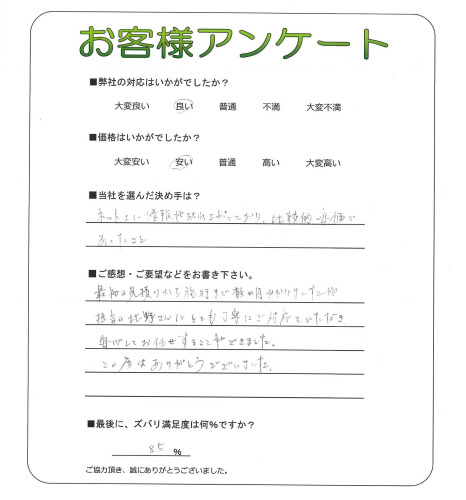 お客様アンケート
■弊社の対応はいかがでしたか？
大変良い 良い 普通 不満 大変不満
■価格はいかがでしたか？
大変安い 安い 普通 高い 大変高い
■当社を選んだ決め手は？
ネット上に情報が 上がっており、比較的安価で
あったこと
■ご感想・ご要望などをお書き下さい。
最初の見積りから施行まで数か月かかりましたが
担当の 野さんにとても丁寧にご対応をいただき
安心してお任せすることができました。
この度はありがとうございました。
■最後に、ズバリ満足度は何％ですか？
85 ％
ご協力頂き、誠にありがとうございました。